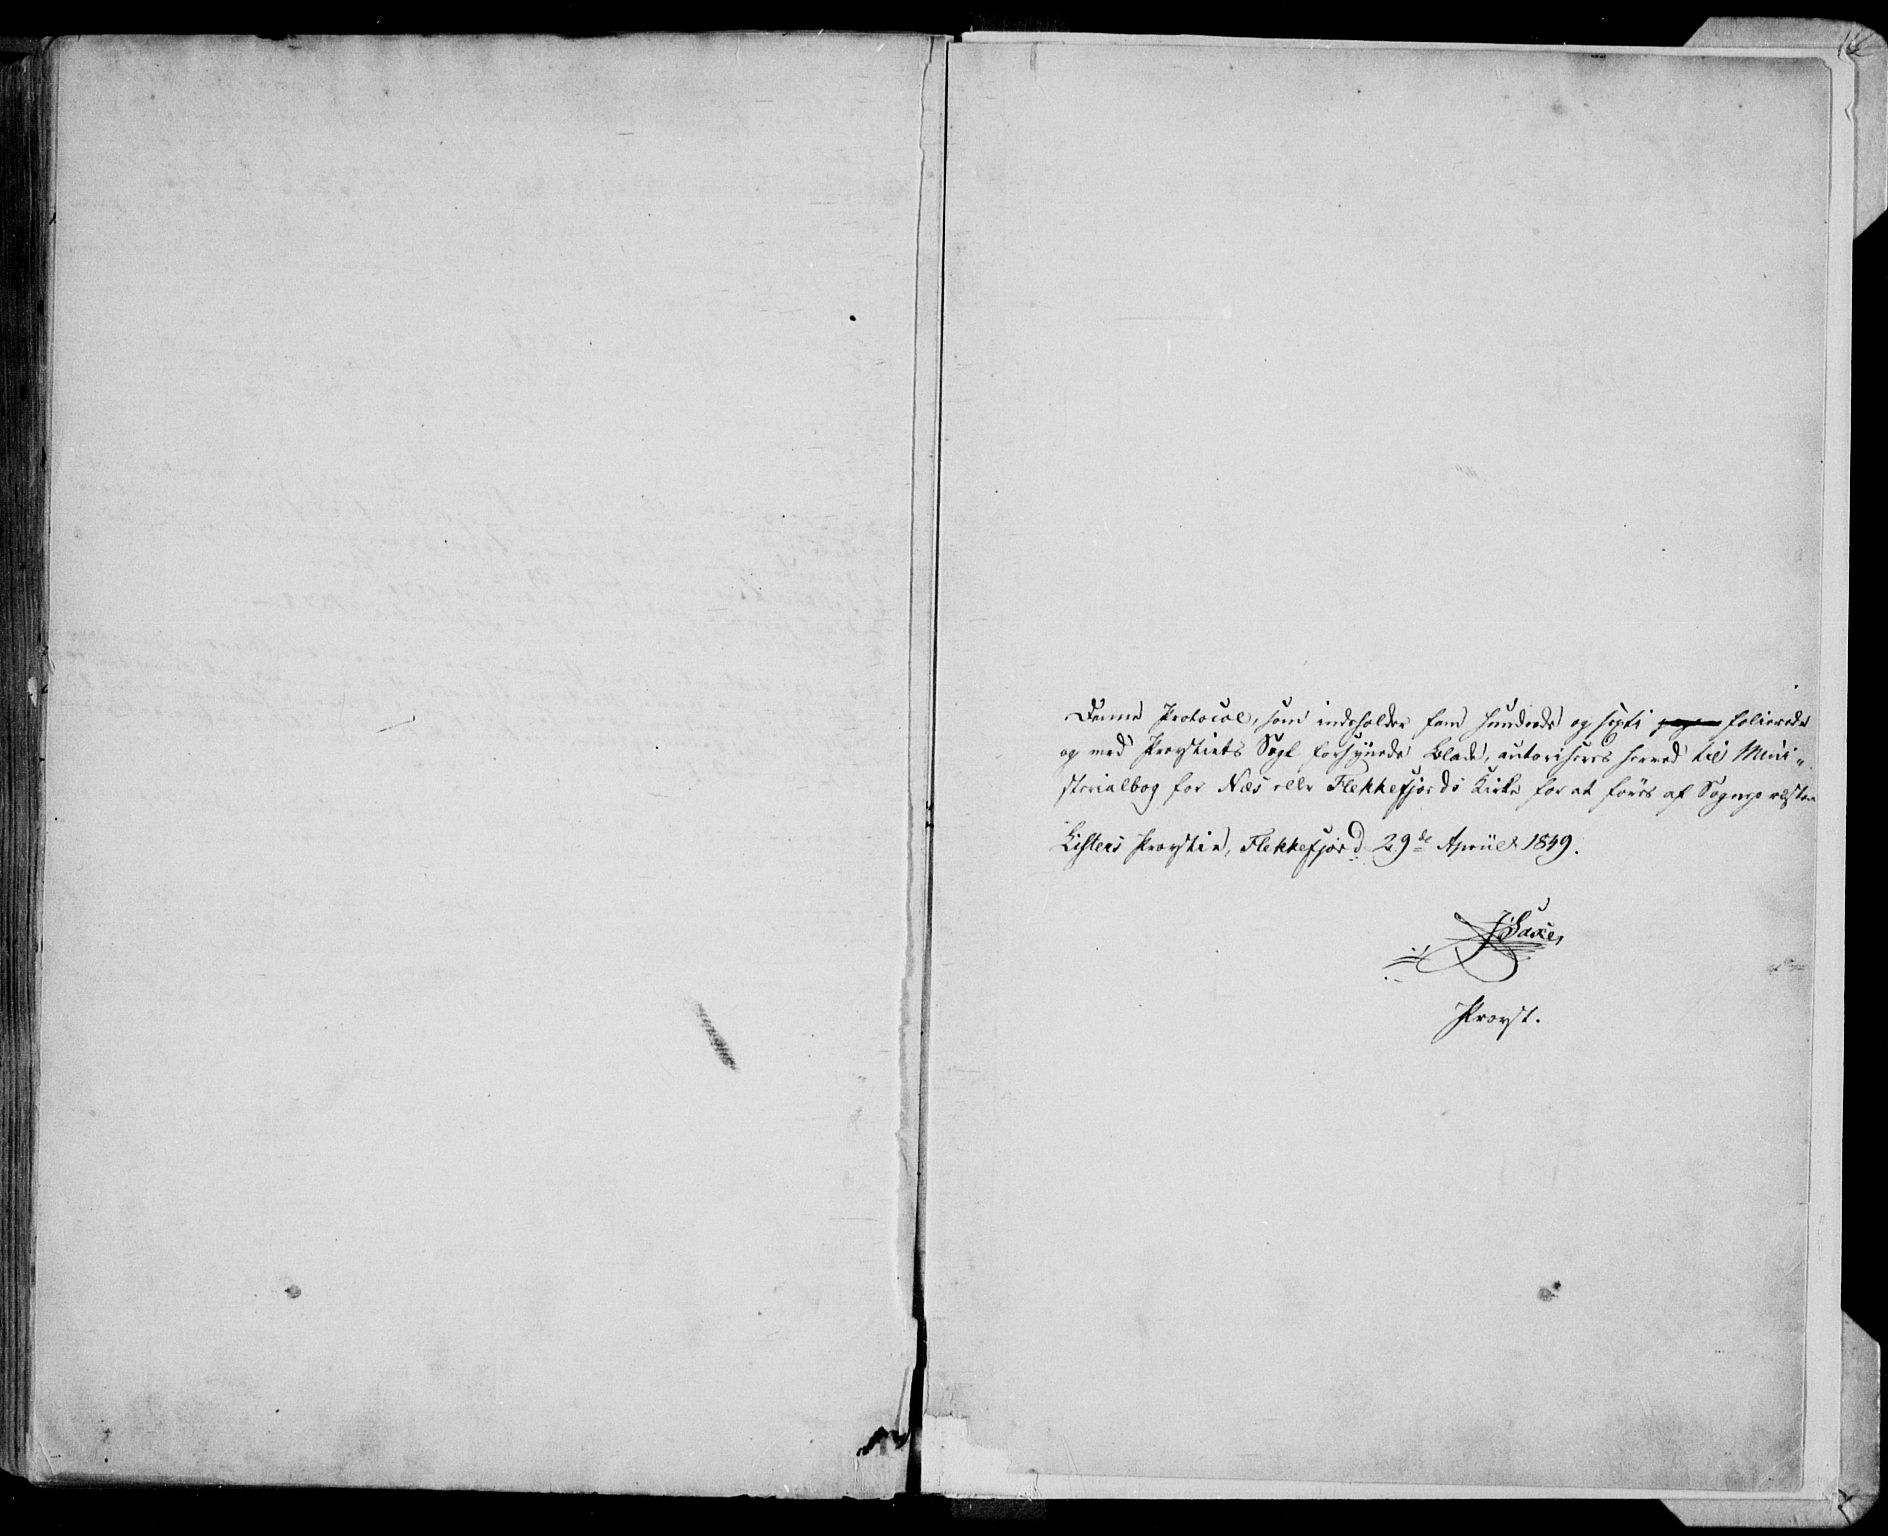 Denne Protocol, som indeholder fem hundrede og sexti folierede
og med Provstiets Segl forsynede Blade, autoriseres herved til Mini„
sterialbog for Næs eller Flekkefjords Kirke for at føres af Sognepræsten
Listers Provstie, Flekkefjord 29de April 1849.
Saxe,
Provst.